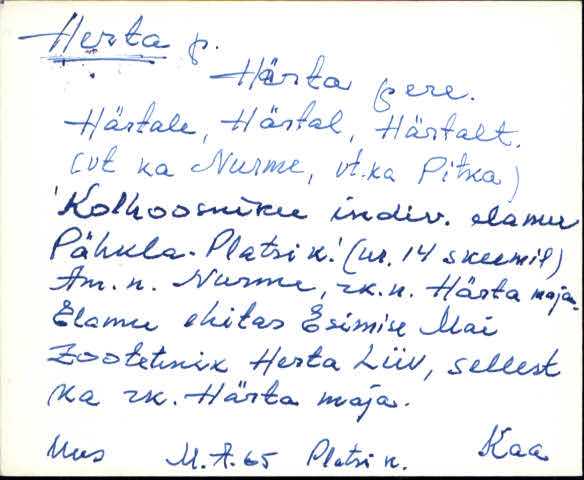 Herta p.
Härta pere.
Härtale, Härtal, Härtalt.
(vt ka Nurme, vt. ka Pitka)
'Kolhoosniku indiv. elamu
Pähkla-Platsi k.' (nr. 14 skeemil)
Am. n. Nurme, rk. n. Härta maja.
Elamu ehitas Esimise Mai
zootehnik Herta Liiv, sellest
ka rk. Härta maja.
Uus M. A. 65 Platsi k. Kaa